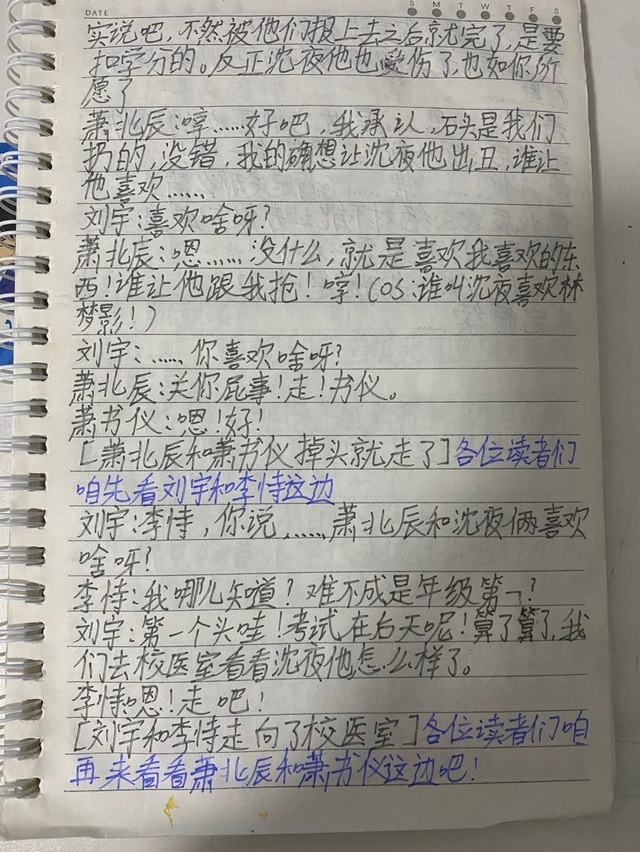 DATE S M T W T F S
实说吧，不然被他们报上去之后就完了，是要
扣学分的。反正沈夜他也受伤了，也如你所
愿了
萧北辰：哼……好吧，我承认，石头是我们
扔的，没错，我的确想让沈夜他出丑，谁让
他喜欢……
刘宇：喜欢啥呀？
萧北辰：嗯……没什么，就是喜欢我喜欢的东
西！谁让他跟我抢！哼！（OS：谁叫沈夜喜欢林
梦影！）
刘宇：……你喜欢啥呀？
萧北辰：关你屁事！走！书仪。
萧书仪：嗯！好！
[萧北辰和萧书仪掉头就走了]各位读者们
咱先看刘宇和李恃这边
刘宇：李恃，你说……萧北辰和沈夜俩喜欢
啥呀？
李恃：我哪儿知道？难不成是年级第一？
刘宇：第一个头哇！考试在后天呢！算了算了，我
们去校医室看看沈夜他怎么样了。
李恃：嗯！走吧！
[刘宇和李恃走向了校医室]各位读者们咱
再来看看萧北辰和萧书仪这边吧！